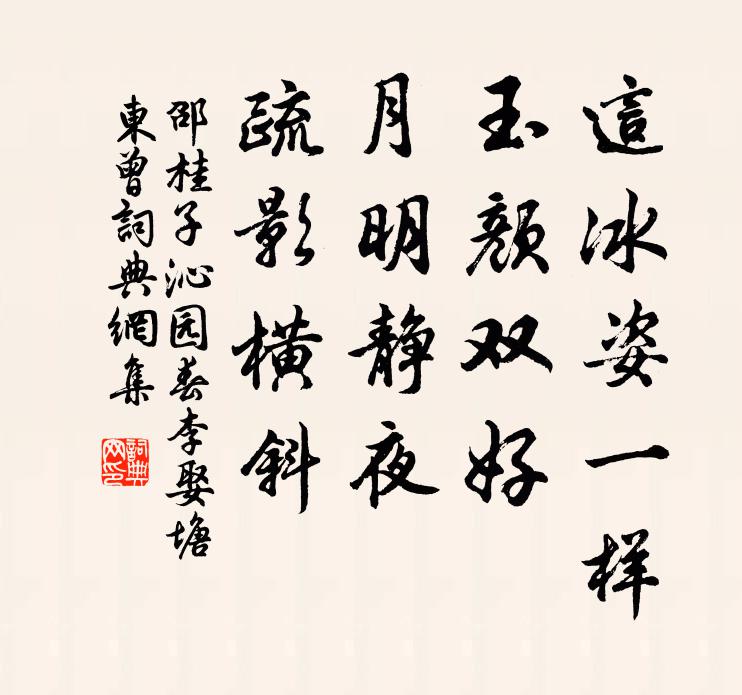 這冰姿一样
玉颜双好
月明静夜
疏影橫斜
邵桂子沁园春李娶塘
東曾詞典網集
詞典網印